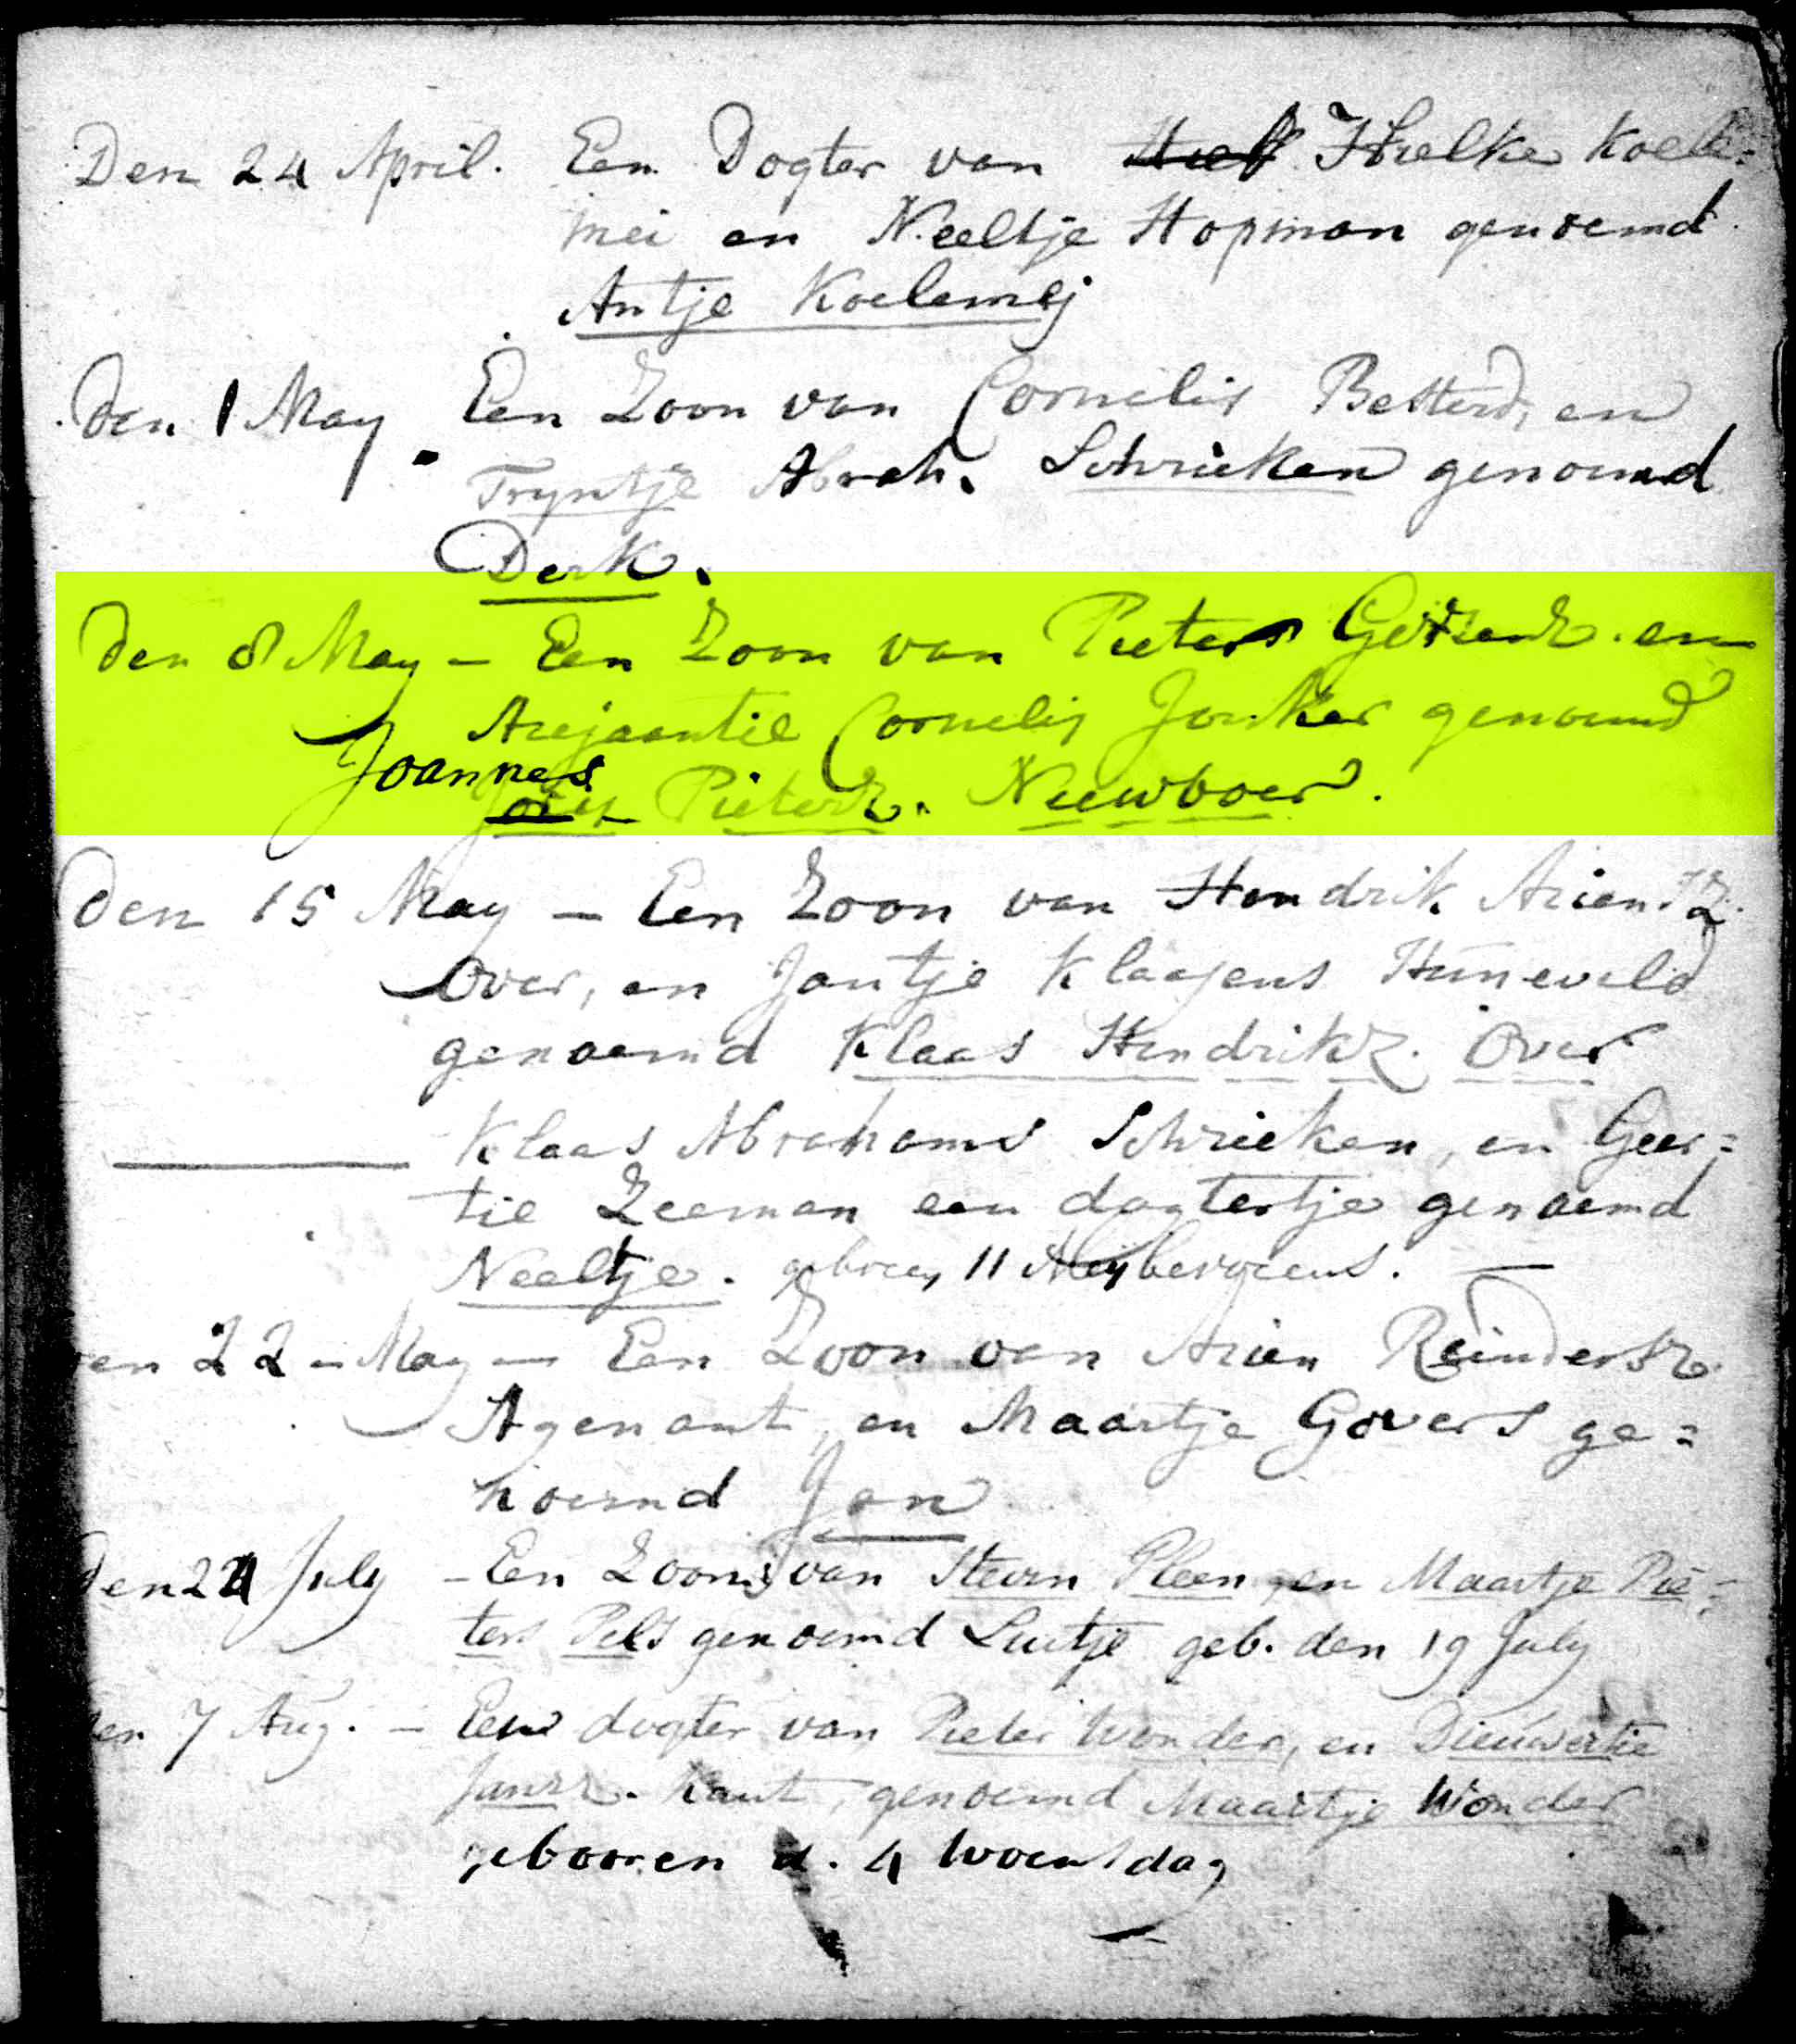 Den 24 April. Een Dogter van Hielke Koele=
mei en Neeltje Hopman genoemd
Antje Koelemej
den 1 May Een Zoon van Cornelis Betterd, en
Tryntje Abrah. Schrieken genoemd
Derk.
den 8 May - Een Zoon van Pieter en
Arejaantie Cornelis Jonker genoemd
Joannes
Pieterz. Nieuwboer.
den 15 May - Een Zoon van Hendrik Ariensz.
Over, en Jantje Klaasens Huneveld
genoemd Klaas Hendrikz. Over
Klaas Abrahams Schrieken, en Geer=
tie Zeeman een dogtertje genoemd
Neeltje. 11 bevorens. —
en 22 - May - Een Zoon van Arien Reindersz.
Agenant, en Maartje Govers ge=
noemd Jan
den 24 July - Een Zoon van Steven Pleen, en Maartje Pie=
ters Pels genoemd Luitje geb. den 19 July
en 7 Aug. - Een dogter van Pieter Wonder, en Dieuwertie
Jansz. Kaut, genoemd Maartje Wonder
gebooren d. 4 Woensdag